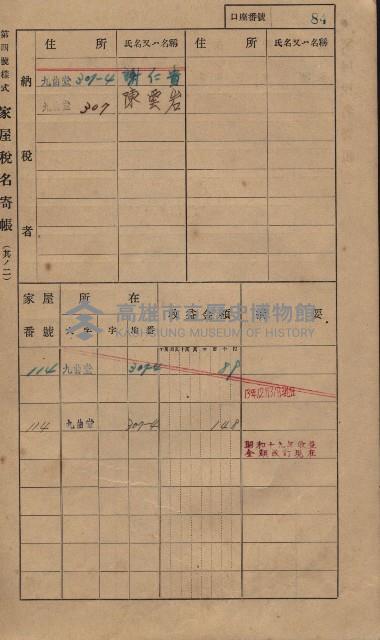 口座番號 84
第四號樣式 家屋稅名寄帳 (其ノ二)
納稅者
住所 氏名又ハ名稱 住所 氏名又ハ名稱
九曲堂 307-4 謝仁貴
九曲堂 307 陳雲岩
家屋番號 所在 收益金額 摘要
大字 字 地番
高雄市立歷史博物館
KAOHSIUNG MUSEUM OF HISTORY
114 九曲堂 307-4 89
114 九曲堂 307-4 148
昭和十九年收益
金額改訂現在